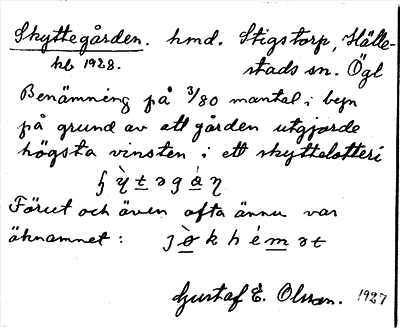 Skyttegården. hmd. Stigstorp, Hälle-
hb 1928. stads sn. Ögl
Benämning på 3/80 mantal i byn
på grund av att gården utgjorde
högsta vinsten i ett skyttelotteri
Förut och även ofta ännu var
öknamnet:
Gustaf E. Olsson. 1927